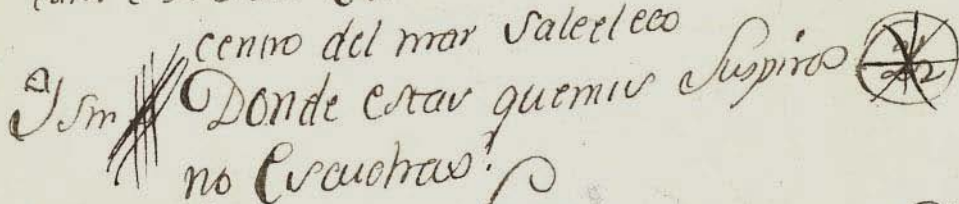 centro del mar sale el eco
Ysm Donde estas que mis suspiros
no escuchas?